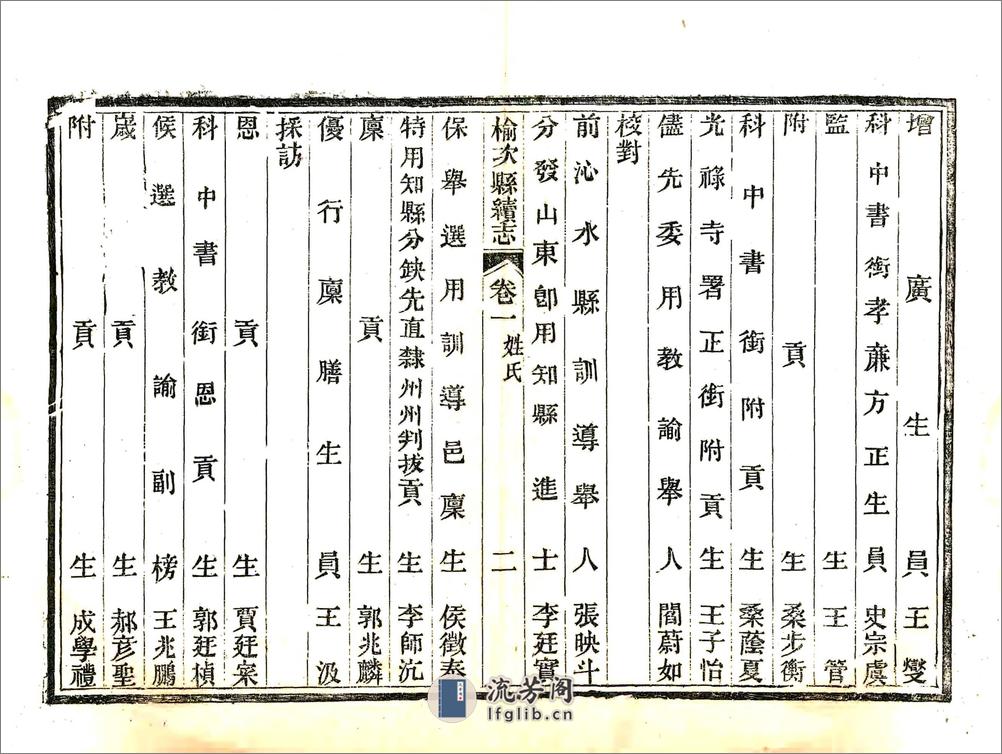 增廣生員王燮
科中書銜孝廉方正生員史宗虞
監生王管
附貢生桑步衡
科中書銜附貢生桑蔭夏
光祿寺署正銜附貢生王子怡
儘先委用教諭舉人閻蔚如
校對
前沁水縣訓導舉人張映斗
分發山東卽用知縣進士李廷實
榆次縣續志 卷一 姓氏 二
保舉選用訓導邑廩生侯徵泰
特用知縣分缺先直隸州州判拔貢生李師沆
廩貢生郭兆麟
優行廩膳生員王汲
採訪
恩貢生賈廷寀
科中書銜恩貢生郭廷楨
候選教諭副榜王兆鵬
歲貢生郝彥聖
附貢生成學禮
流芳阁
lfglib.cn